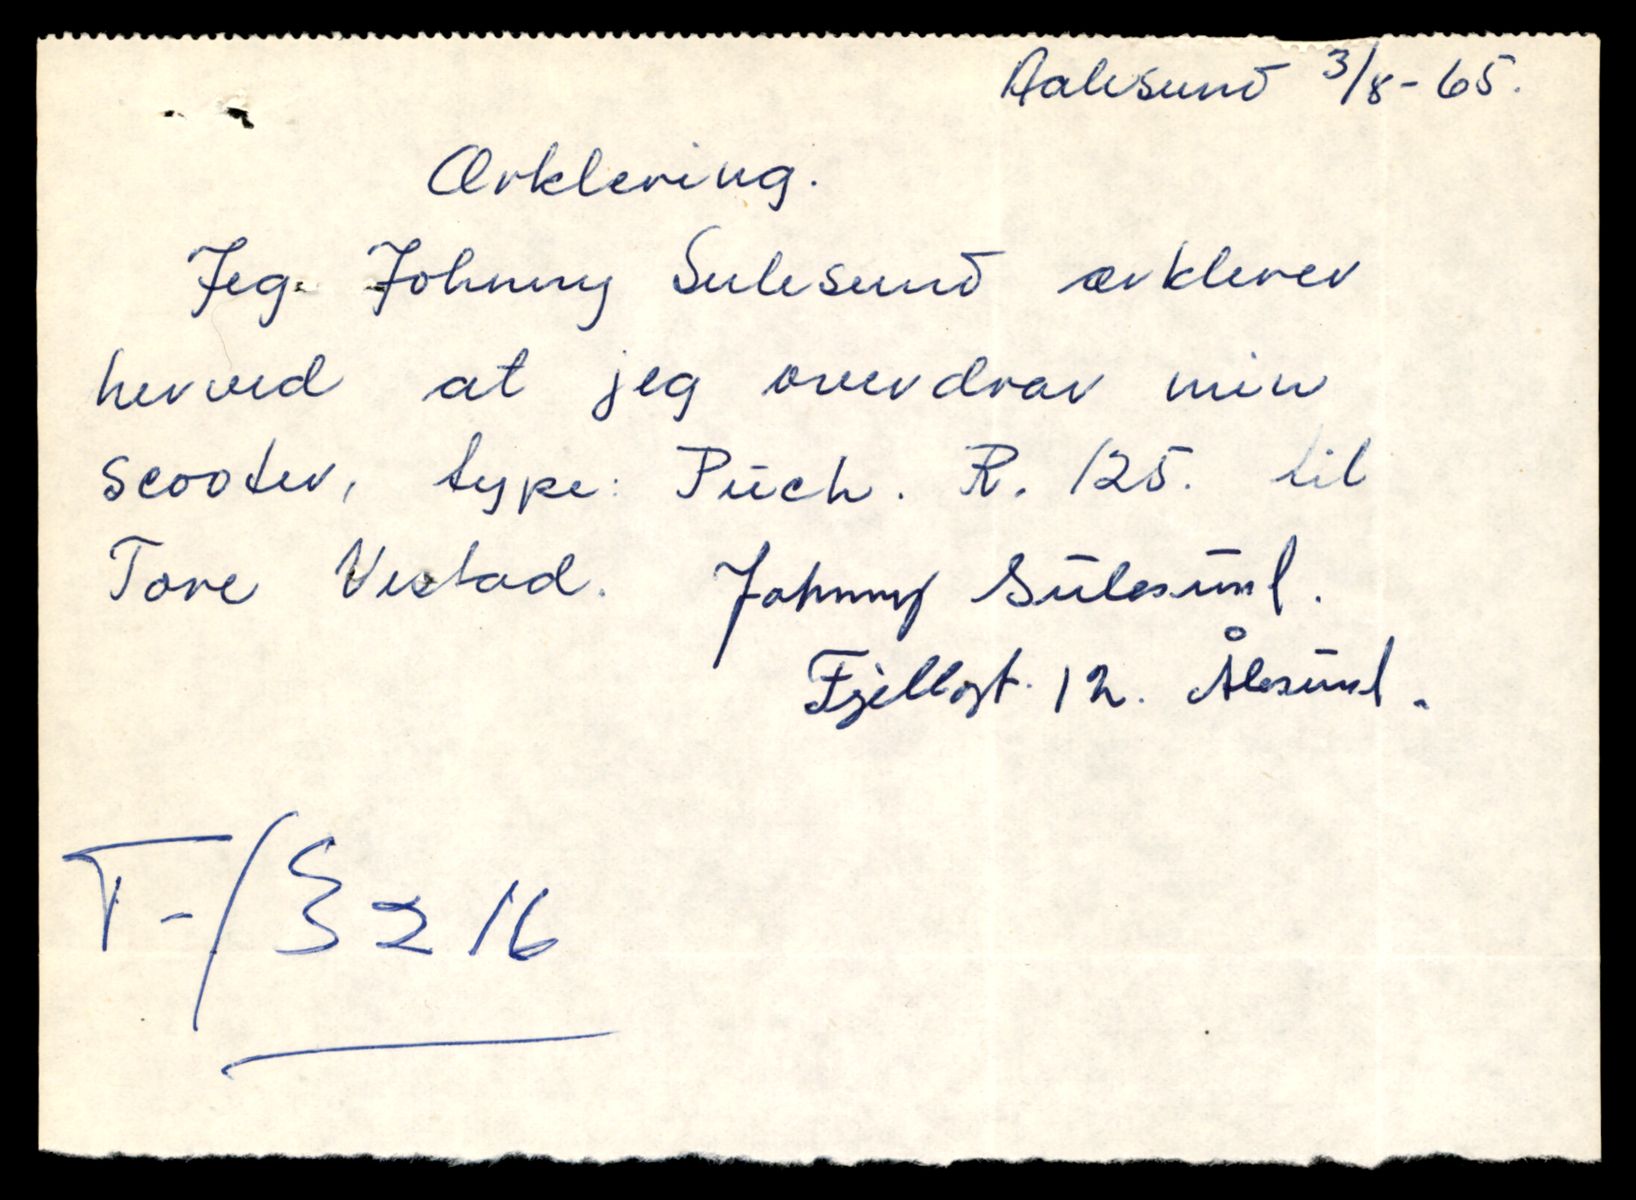 Aalesund 3/8-65.
Ærklering.
Jeg Johnny Sulesund ærklerer
herved at jeg overdrar min
scooter, type: Püch. R. 125. til
Tore Vestad. Johnny Sülesünd.
Fjellgt. 12. Ålesünd.
T-13216